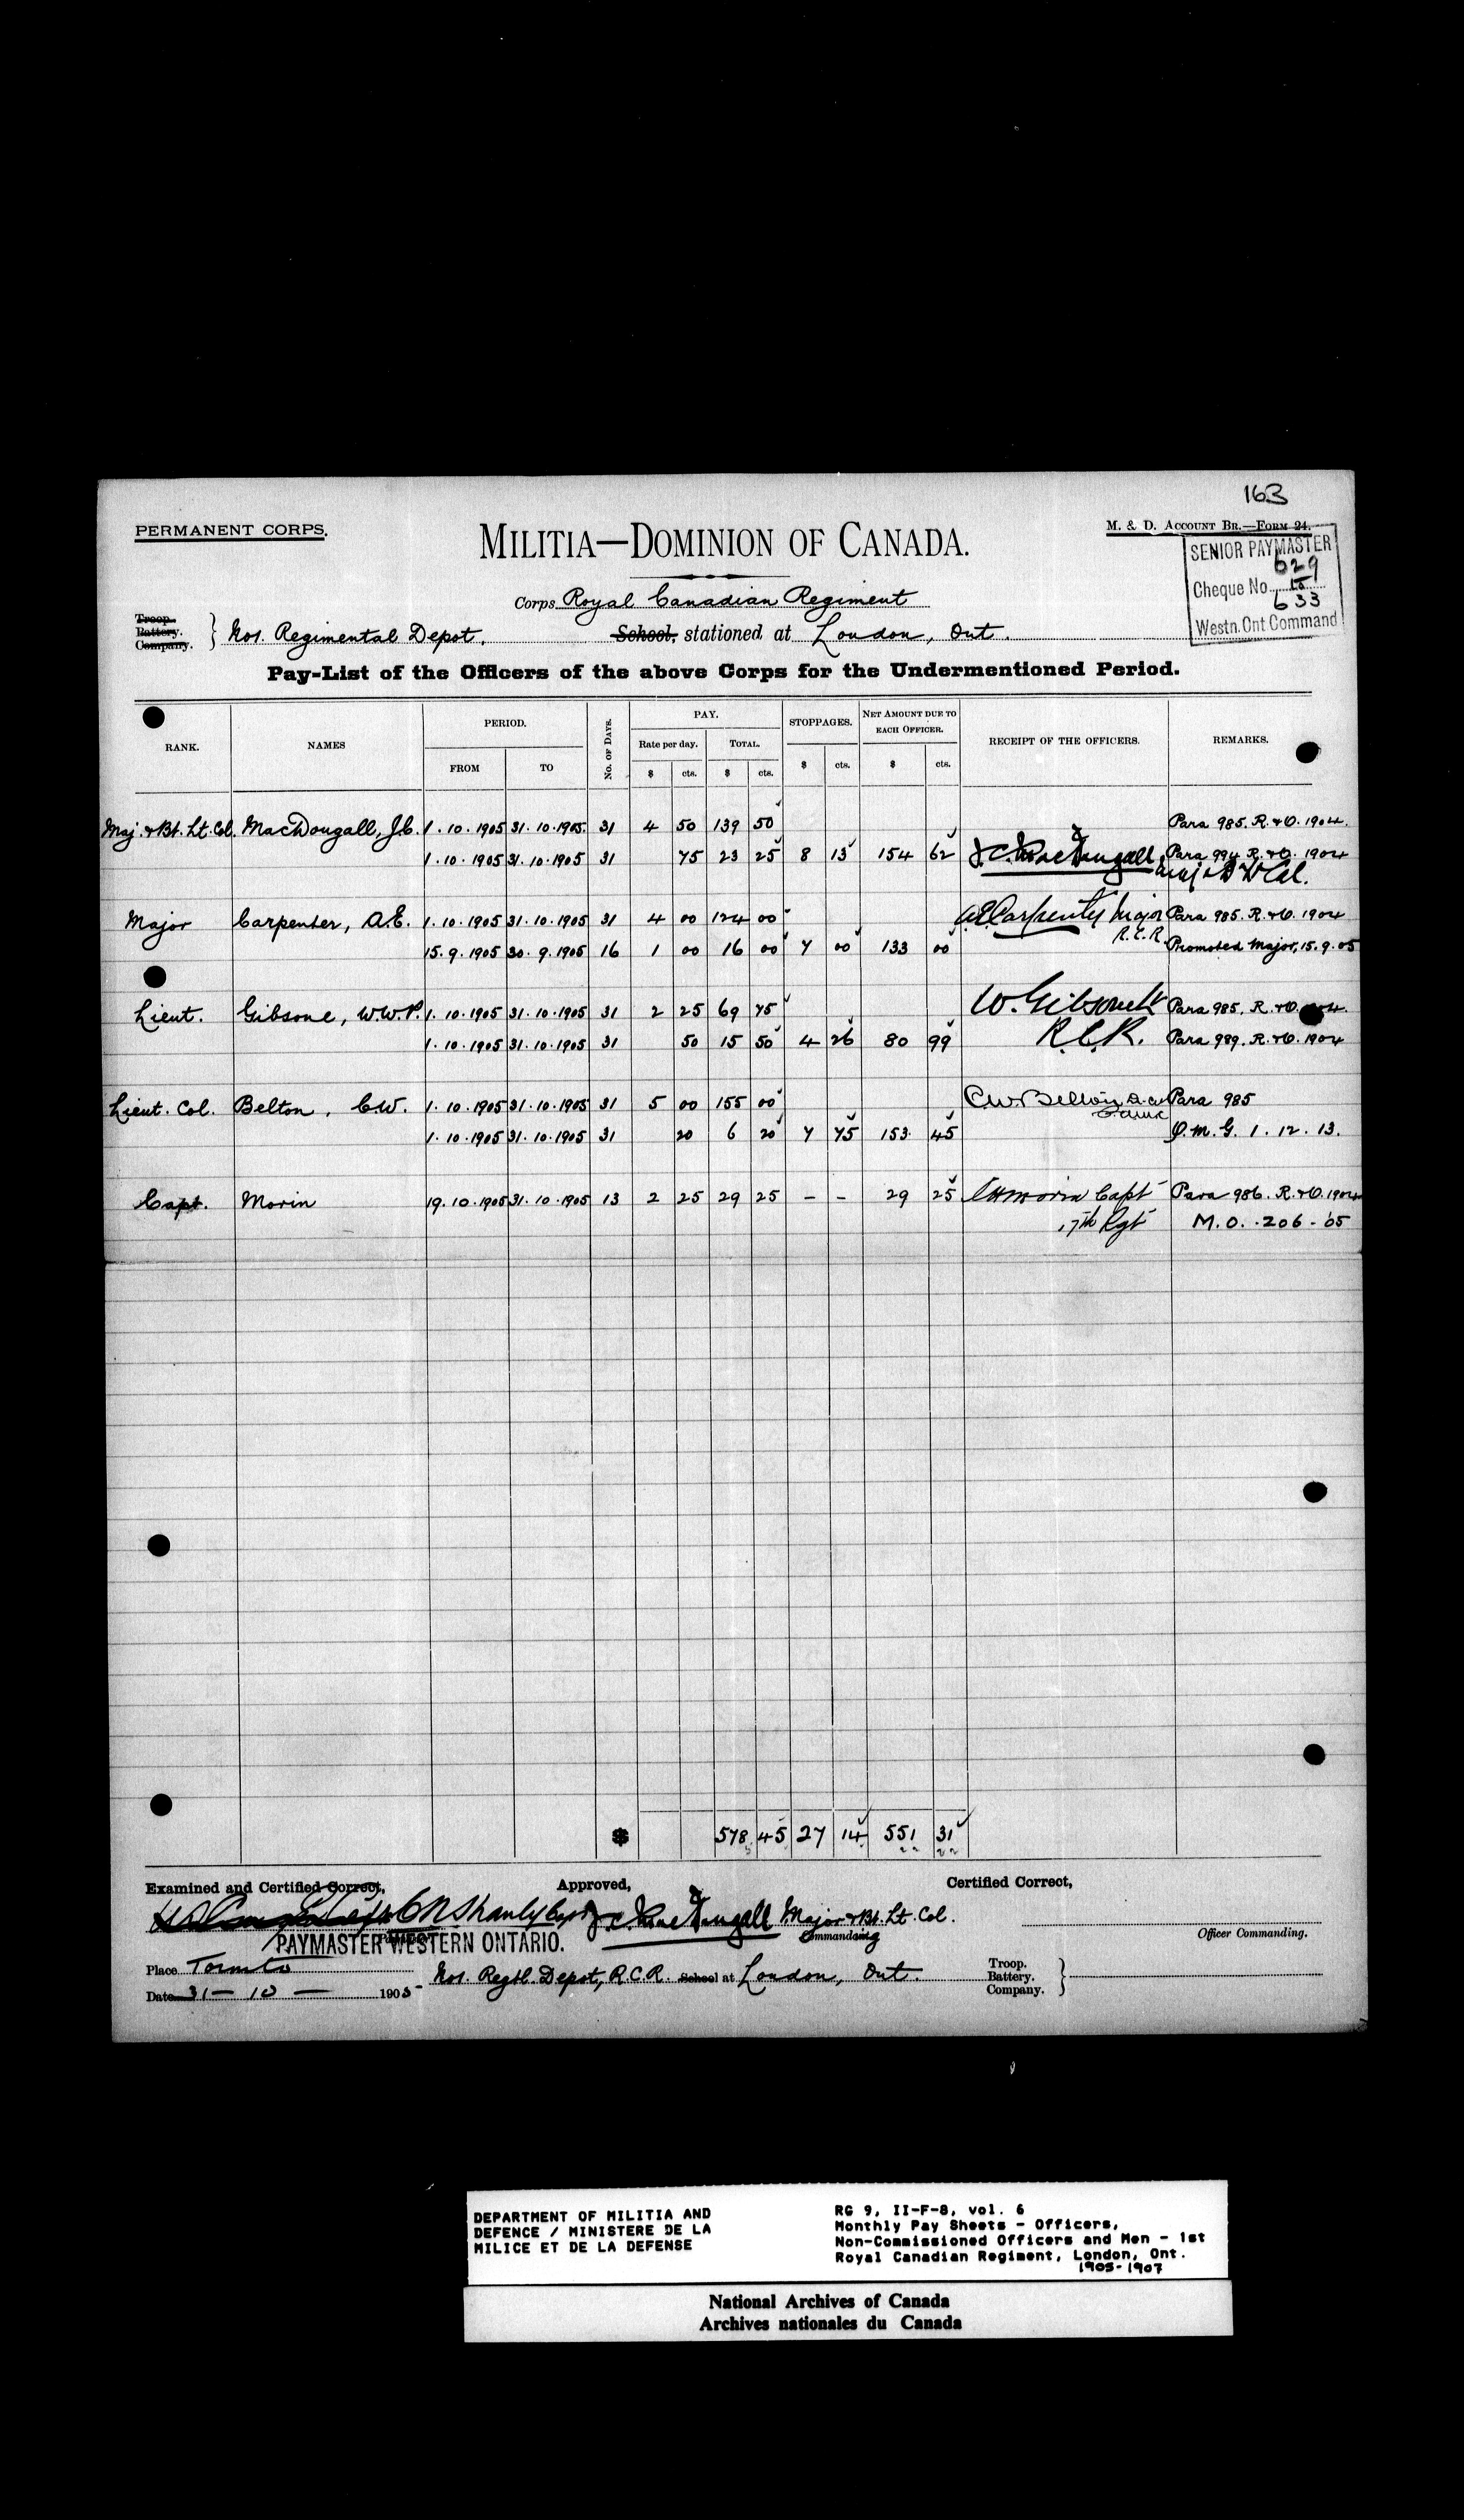 163
PERMANENT CORPS.
M. & D. ACCOUNT BR.—FORM 24.
MILITIA—DOMINION OF CANADA.
SENIOR PAYMASTER
629
Cheque No. to
633
Westn. Ont Command
Corps Royal Canadian Regiment
Troop.
Battery.
Company.
No1. Regimental Depot. School, stationed at London, Ont.
Pay-List of the Officers of the above Corps for the Undermentioned Period.
RANK. NAMES PERIOD. No. of Days. PAY. STOPPAGES. NET AMOUNT DUE TO EACH OFFICER. RECEIPT OF THE OFFICERS. REMARKS.
FROM TO Rate per day. TOTAL.
$ cts. $ cts. $ cts. $ cts.
Maj. & Bt. Lt. Col. MacDougall, J.C. 1.10.1905 31.10.1905. 31 4 50 139 50 Para 985. R.&O. 1904.
1.10.1905 31.10.1905 31 75 23 25 8 13 154 62 J.C. MacDougall Para 994 R.&O. 1904
Maj & Bt Lt Col.
Major Carpenter, A.E. 1.10.1905 31.10.1905 31 4 00 124 00 AECarpenter Major Para 985. R.&O. 1904
R.C.R.
15.9.1905 30.9.1905 16 1 00 16 00 7 00 133 00 Promoted Major, 15.9.05
Lieut. Gibsone, W.W.P. 1.10.1905 31.10.1905 31 2 25 69 75 W. Gibsone Lt Para 985, R.&O. 1904.
1.10.1905 31.10.1905 31 50 15 50 4 26 80 99 R.C.R. Para 989. R.&O. 1904
Lieut. Col. Belton, C.W. 1.10.1905 31.10.1905 31 5 00 155 00 C.W. Belton Para 985
1.10.1905 31.10.1905 31 20 6 20 7 75 153 45 Q.M.G. 1.12.13.
Capt. Morin 19.10.1905 31.10.1905 13 2 25 29 25 - - 29 25 Morin Capt Para 986. R.&O. 1904
17th Rgt M.O. 206-05
$ 578 45 27 14 551 31
Examined and Certified Correct, Approved, Certified Correct,
C N Shanly Capt J.C. MacDougall Major & Bt. Lt. Col.
Paymaster Commanding Officer Commanding.
PAYMASTER WESTERN ONTARIO.
Place Toronto
No1. Regtl. Depot, R.C.R. School at London, Ont.
Troop.
Battery.
Company.
Date 31 - 10 - 1905
DEPARTMENT OF MILITIA AND
DEFENCE / MINISTERE DE LA
MILICE ET DE LA DEFENSE
RG 9, II-F-8, vol. 6
Monthly Pay Sheets - Officers,
Non-Commissioned Officers and Men - 1st
Royal Canadian Regiment, London, Ont.
1905-1907
National Archives of Canada
Archives nationales du Canada